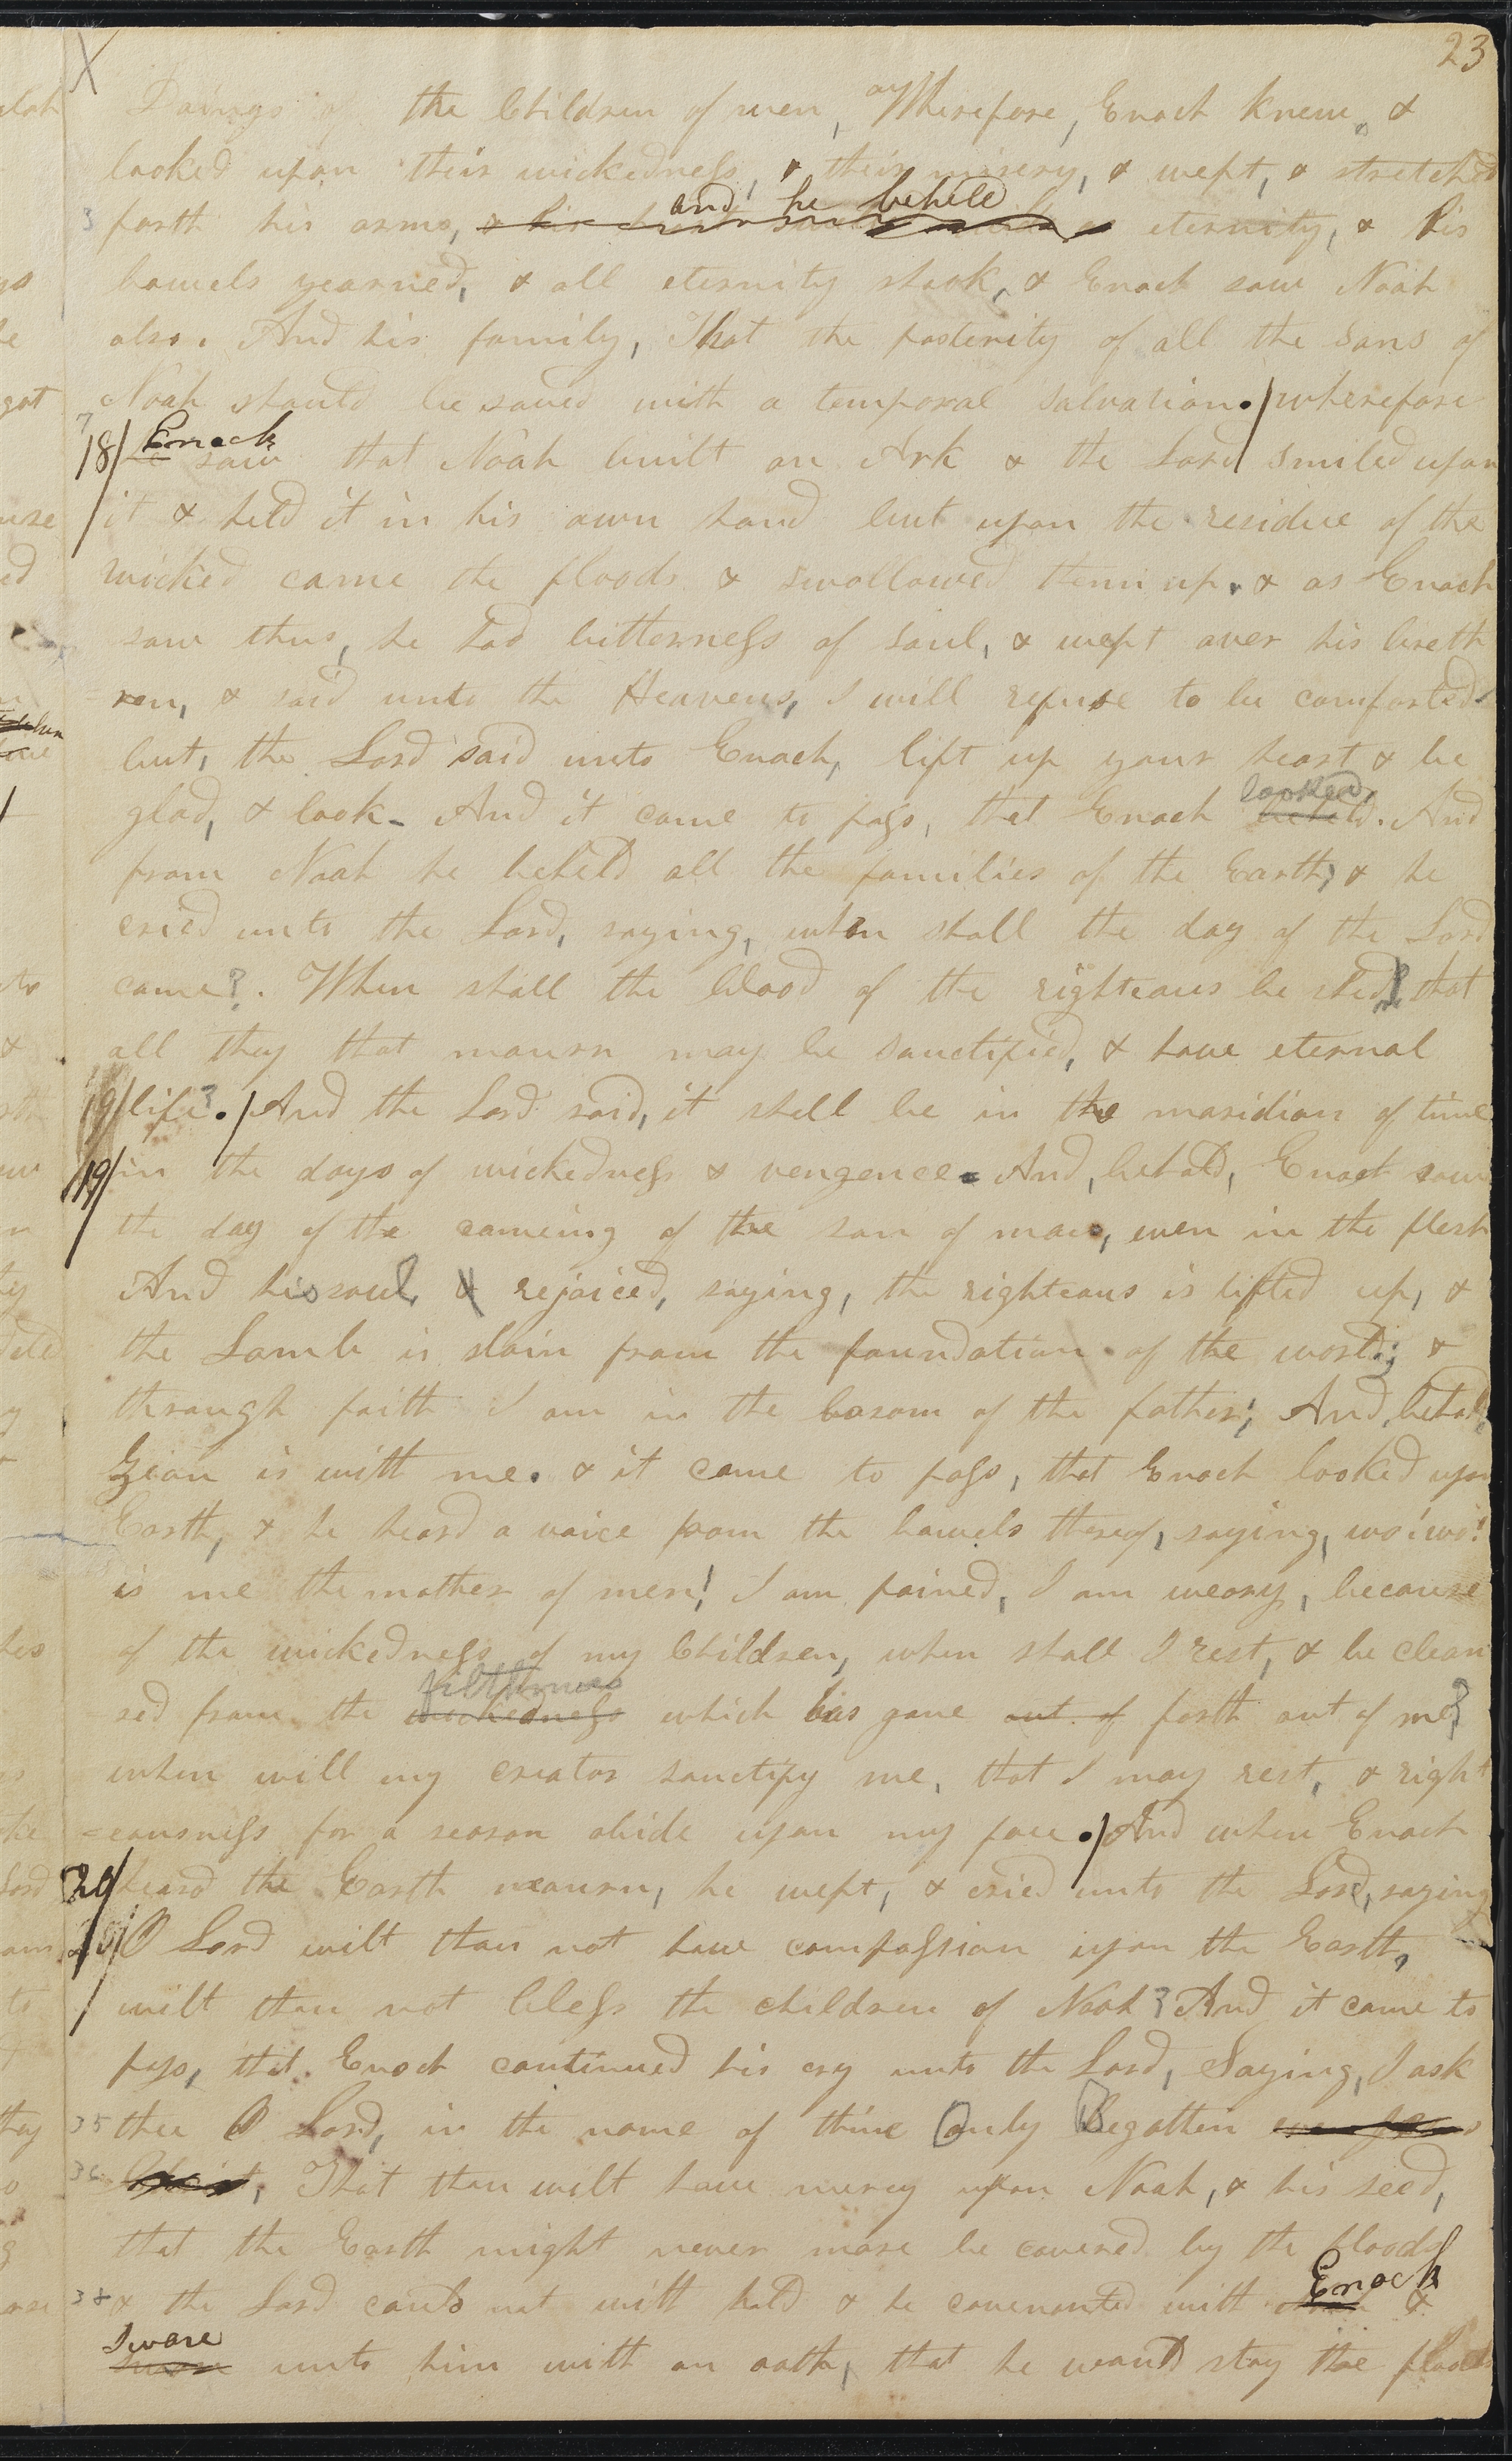 23
Doings of the Children of men, Wherefore, Enoch knew, &
looked upon their wickedness, & their misery, & wept, & stretched
and he beheld
3 forth his arms, eternity, & his
bowels yearned, & all eternity shook, & Enoch saw Noah
also. And his family, That the posterity of all the sons of
Noah should be saved with a temporal salvation. / wherefore
Enoch
18/ he saw that Noah built an Ark & the Lord smiled upon
it & held it in his own hand but upon the residue of the
wicked came the floods & swollowed them up. & as Enoch
saw thus, he had bitterness of soul, & wept over his breth
ren, & said unto the Heavens, I will refuse to be comforted
but, the Lord said unto Enoch, lift up your heart & be
looked,
glad, & look- And it came to pass, that Enoch beheld. And
from Noah he beheld all the families of the Earth, & he
cried unto the Lord, saying, when shall the day of the Lord
come?. When shall the blood of the righteous be shed, that
all they that mourn may be sanctified, & have eternal
19/ life?. / And the Lord said, it shall be in the maridian of time
19/ in the days of wickedness & vengence. And, behold, Enoch saw
the day of the comeing of the son of man, even in the flesh
And his soul, & rejoiced, saying, the righteous is lifted up, &
the Lamb is slain from the foundation of the world; &
through faith I am in the bosom of the father; And, behold,
Zion is with me. & it came to pass, that Enoch looked upon
Earth, & he heard a voice from the bowels thereof, saying, wo! wo!
is me the mother of men! I am pained, I am weary, because
of the wickedness of my Children, when shall I rest, & be clean
filthiness
sed from the wickedness which has gone out of forth out of me?
when will my creator sanctify me, that I may rest, & right
=eousness for a season abide upon my face. / And when Enoch
20/ heard the Earth mourn, he wept, & cried unto the Lord, saying
20/ O Lord wilt thou not have compassion upon the Earth,
wilt thou not bless the children of Noah? And it came to
pass, that Enoch continued his cry unto the Lord, Saying, I ask
35 thee O Lord, in the name of thine Only Begotten even Jesus
36 Christ, That thou wilt have mercy upon Noah, & his seed,
that the Earth might never more be covered by the floods
Enoch
38 & the Lord could not with hold & he covenanted with &
Sware
unto him with an oath, that he would stay the floods